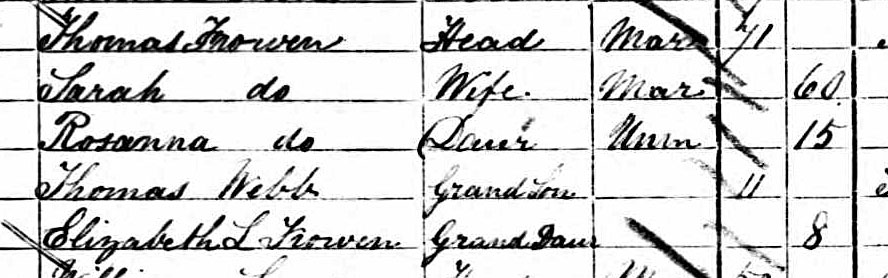 Thomas Frowen Head Mar 71
Sarah do Wife Mar 60
Rosanna do Daur Unm 15
Thomas Webb Grand Son 11
Elizabeth L Frowen Grand Daur 8